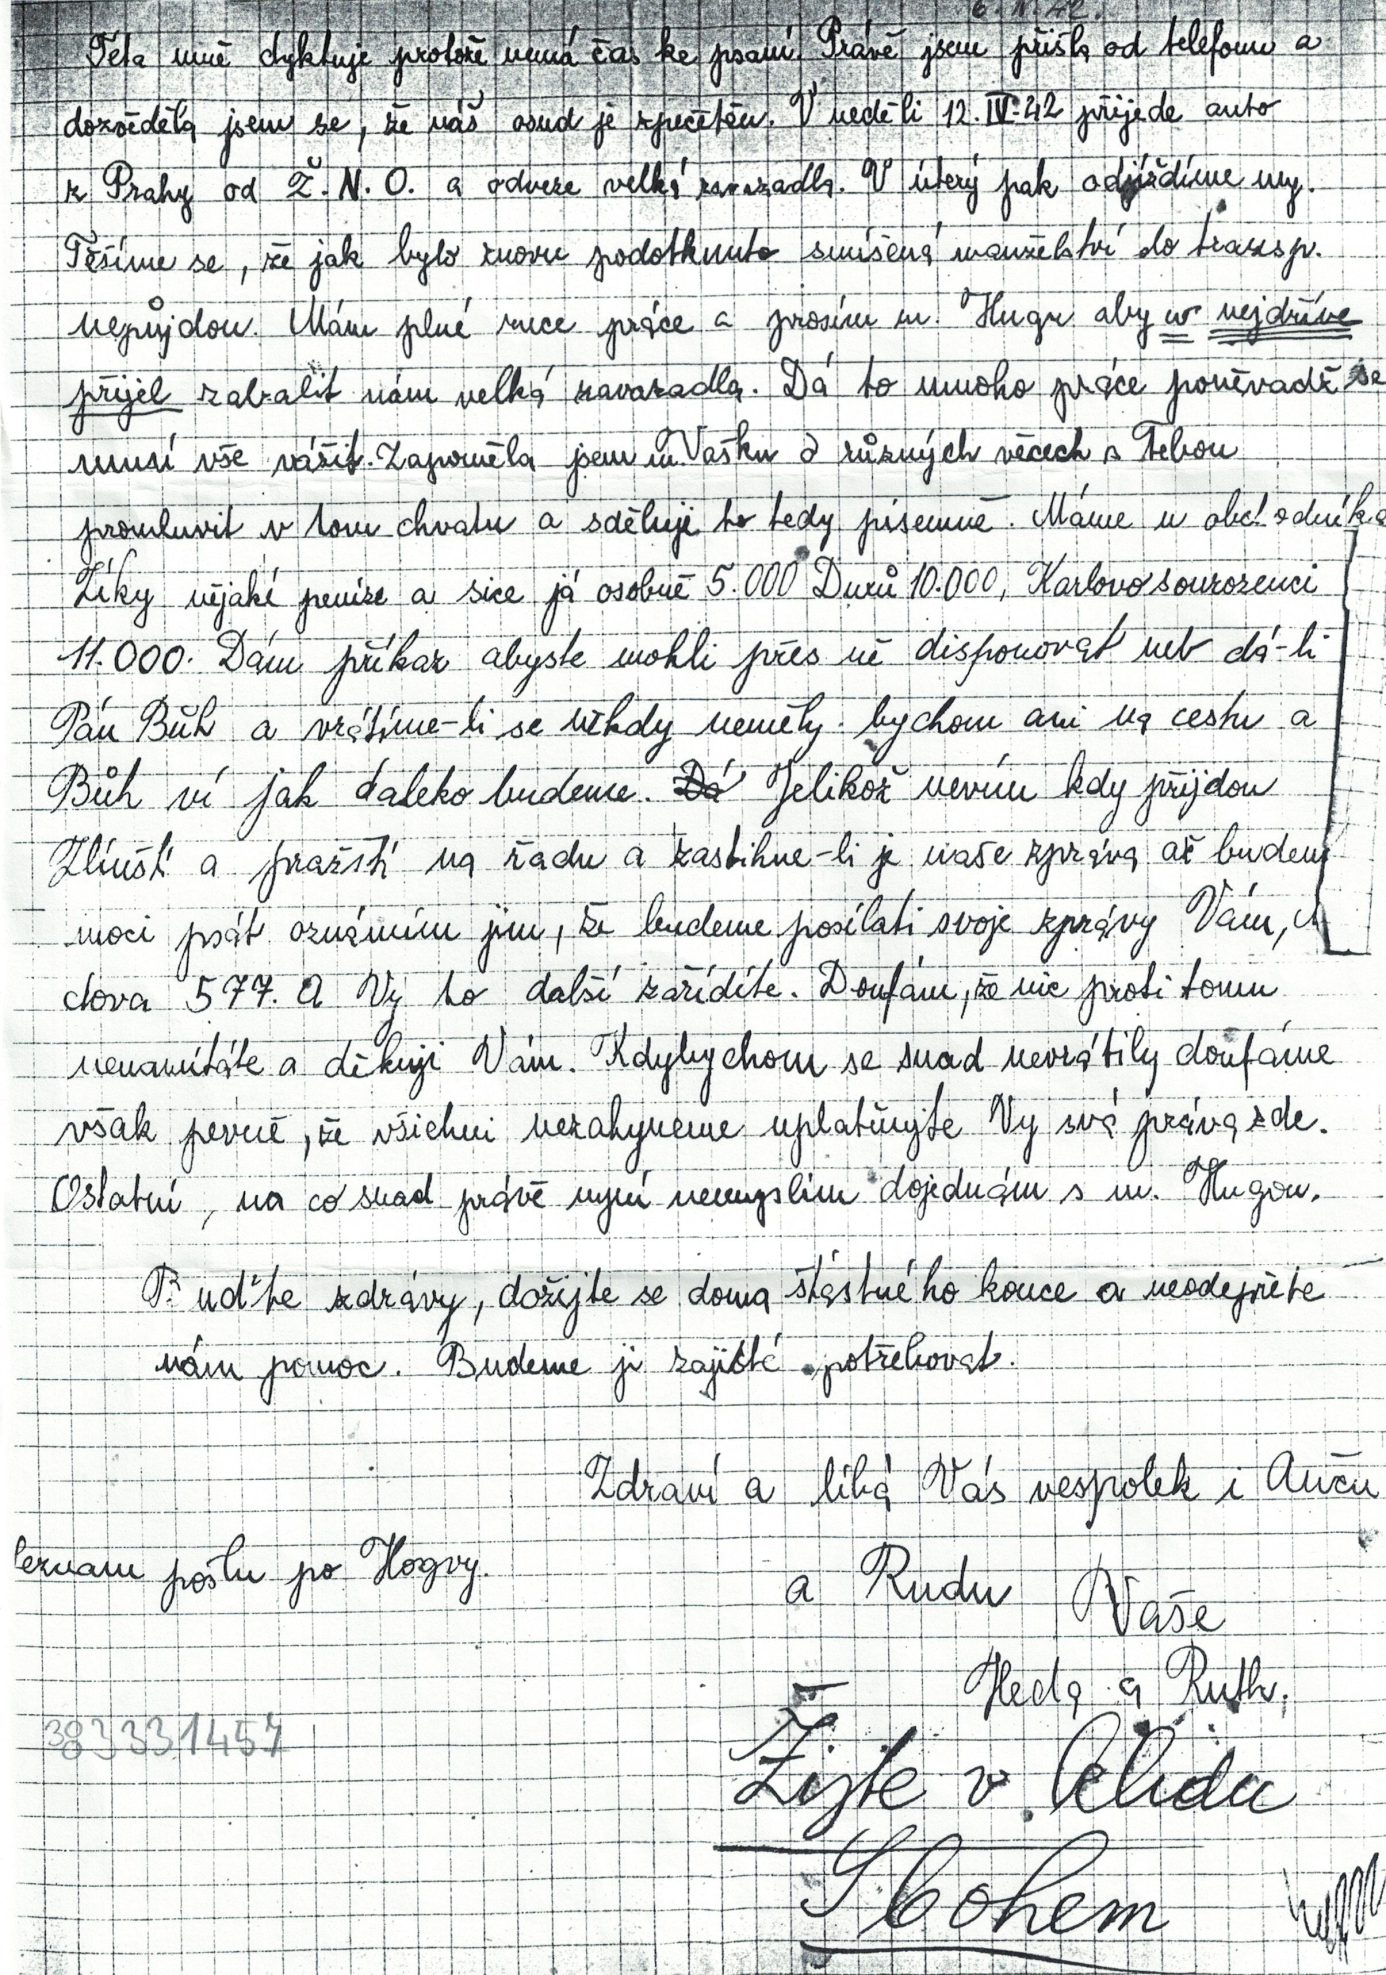 6. IV. 42.
Teta mně dyktuje protože nemá čas ke psaní. Právě jsem přišla od telefonu a
dozvěděla jsem se, že náš osud je zpečetěn. V neděli 12. IV. 42 přijede auto
z Prahy od Ž. N. O. a odveze velká zavazadla. V úterý pak odjíždíme my.
Těšíme se, že jak bylo znovu podotknuto smíšená manželství do transp.
nepůjdou. Mám plné ruce práce a prosím m. Hugu aby co nejdříve
přijel zabalit nám velká zavazadla. Dá to mnoho práce poněvadž se
musí vše vážit. Zapoměla jsem m. Vašku o různých věcech s Tebou
promluvit v tom chvatu a sděluji to tedy písemně. Máme u obchodníka
Zíky nějaké peníze a sice já osobně 5.000 Durů 10.000, Karlovo sourozenci
11.000. Dám příkaz abyste mohli přes ně disponovat neb dá-li
Pán Bůh a vrátíme-li se někdy neměly bychom ani na cestu a
Bůh ví jak daleko budeme. Dá Jelikož nevím kdy přijdou
Zlínští a pražští na řadu a zastihne-li je naše zpráva až budem
moci psát oznámím jim, že budeme posílati svoje zprávy Vám,
ctova 577. A Vy to další zařídíte. Doufám, že nic proti tomu
nenamítáte a děkuji Vám. Kdybychom se snad nevrátily doufáme
však pevně, že všichni nezahyneme uplatňujte Vy svá práva zde.
Ostatní, na co snad právě nyní nemyslím dojednám s m. Hugou.
Buďte zdrávy, dožijte se doma štástného konce a neodepřete
nám pomoc. Budeme ji zajisté potřebovat.
Zdraví a líbá Vás vespolek i Anču
eznam pošlu po Hogvy.
a Rudu Vaše
Heda a Ruth.
383331457
Žijte v klidu
Sbohem